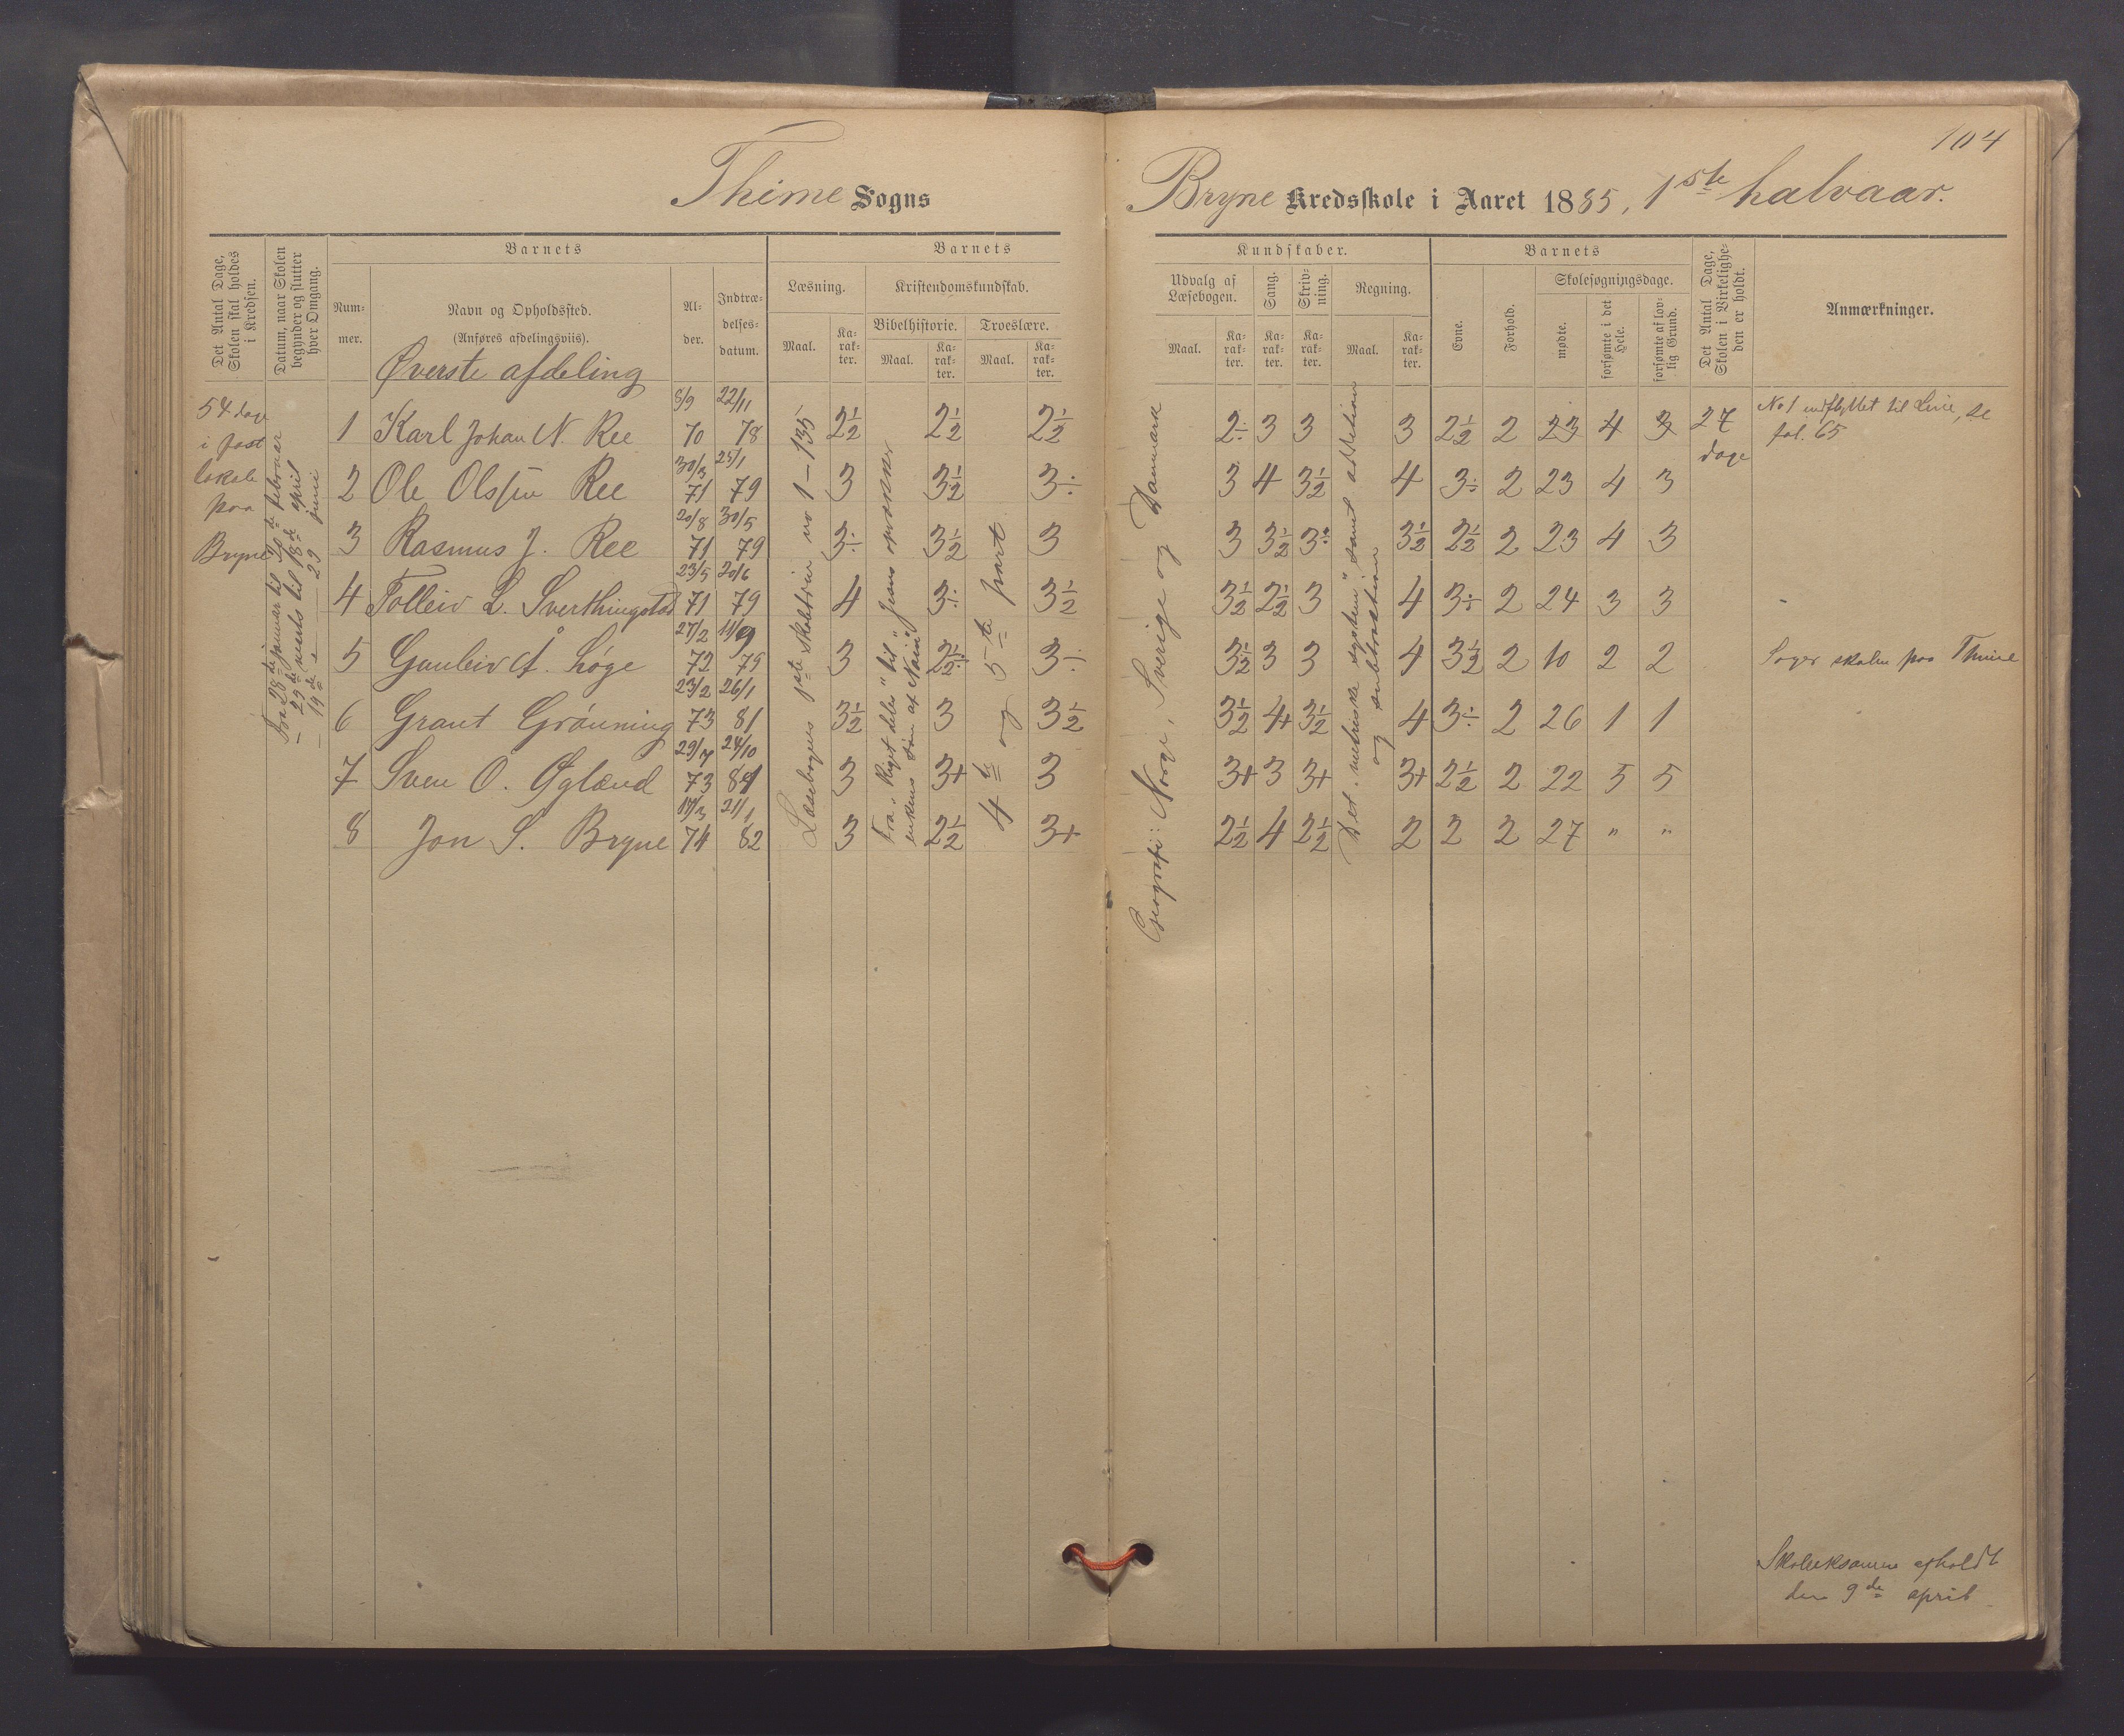 104
Thime Sogns
Bryne Kredsskole i Aaret 1885, 1ste halvaar.
Det Antal Dage, Skolen skal holdes i Kredsen.
Datum, naar Skolen begynder og slutter hver Omgang.
Barnets
Num- mer.
Navn og Opholdssted.
(Anføres afdelingsviis).
Al- der.
Indtræ- delses- datum.
Barnets
Læsning.
Maal.
Ka- rak- ter.
Kristendomskundskab.
Bibelhistorie.
Maal.
Ka- rak- ter.
Troeslære.
Maal.
Ka- rak- ter.
Kundskaber.
Udvalg af Læsebogen.
Maal.
Ka- rak- ter.
Sang.
Ka- rak- ter.
Skriv- ning.
Ka- rak- ter.
Regning.
Maal.
Ka- rak- ter.
Barnets
Evne.
Forhold.
Skolesøgningsdage.
mødte.
forsømte i det Hele.
forsømte af lov- lig Grund.
Det Antal Dage, Skolen i Virkelighe- den er holdt.
Anmærkninger.
Øverste afdeling
54 dage
i fast
lokale
paa
Bryne
Fra 28de januar til februar
– 29de marts til 18de april
– 19de – 29 juni
Læsebogens 1ste skoletrin no 1–135
Fra "Riget deles" til "Jesus opvækker
enkens søn af Nain"
4de og 5te part
Geografi: Norge, Sverige og Danmark
Det "metriske system" samt addition
og subtraktion
1 Karl Johan N. Ree 8/9 70 22/11 78 2½ 2½ 2½ 2÷ 3 3 3 2½ 2 23 4 3 27 dage No 1 indflyttet til Line, se fol. 65
2 Ole Olsen Ree 30/3 71 25/1 79 3 3½ 3÷ 3 4 3½ 4 3÷ 2 23 4 3
3 Rasmus J. Ree 20/8 71 30/5 79 3÷ 3½ 3 3 3½ 3÷ 3½ 2½ 2 23 4 3
4 Tolleiv L. Sverthingstad 23/5 71 20/6 79 4 3÷ 3½ 3½ 2½ 3 4 3÷ 2 24 3 3
5 Gunleiv A. Høge 27/2 72 11/9 79 3 2½÷ 3÷ 3½ 3 3 4 3½ 2 10 2 2 Søger skolen paa Thime
6 Grant Grönning 23/2 73 26/1 81 3½ 3 3½ 3½ 4+ 3½ 4 3÷ 2 26 1 1
7 Sven O. Øglænd 29/7 73 24/10 81 3 3+ 3 3+ 3 3+ 3+ 2½ 2 22 5 5
8 Jon S. Bryne 17/3 74 21/1 82 3 2½ 3+ 2½ 4 2½ 2 2 2 27 " "
Skoleeksamen afholdt
den 9de april